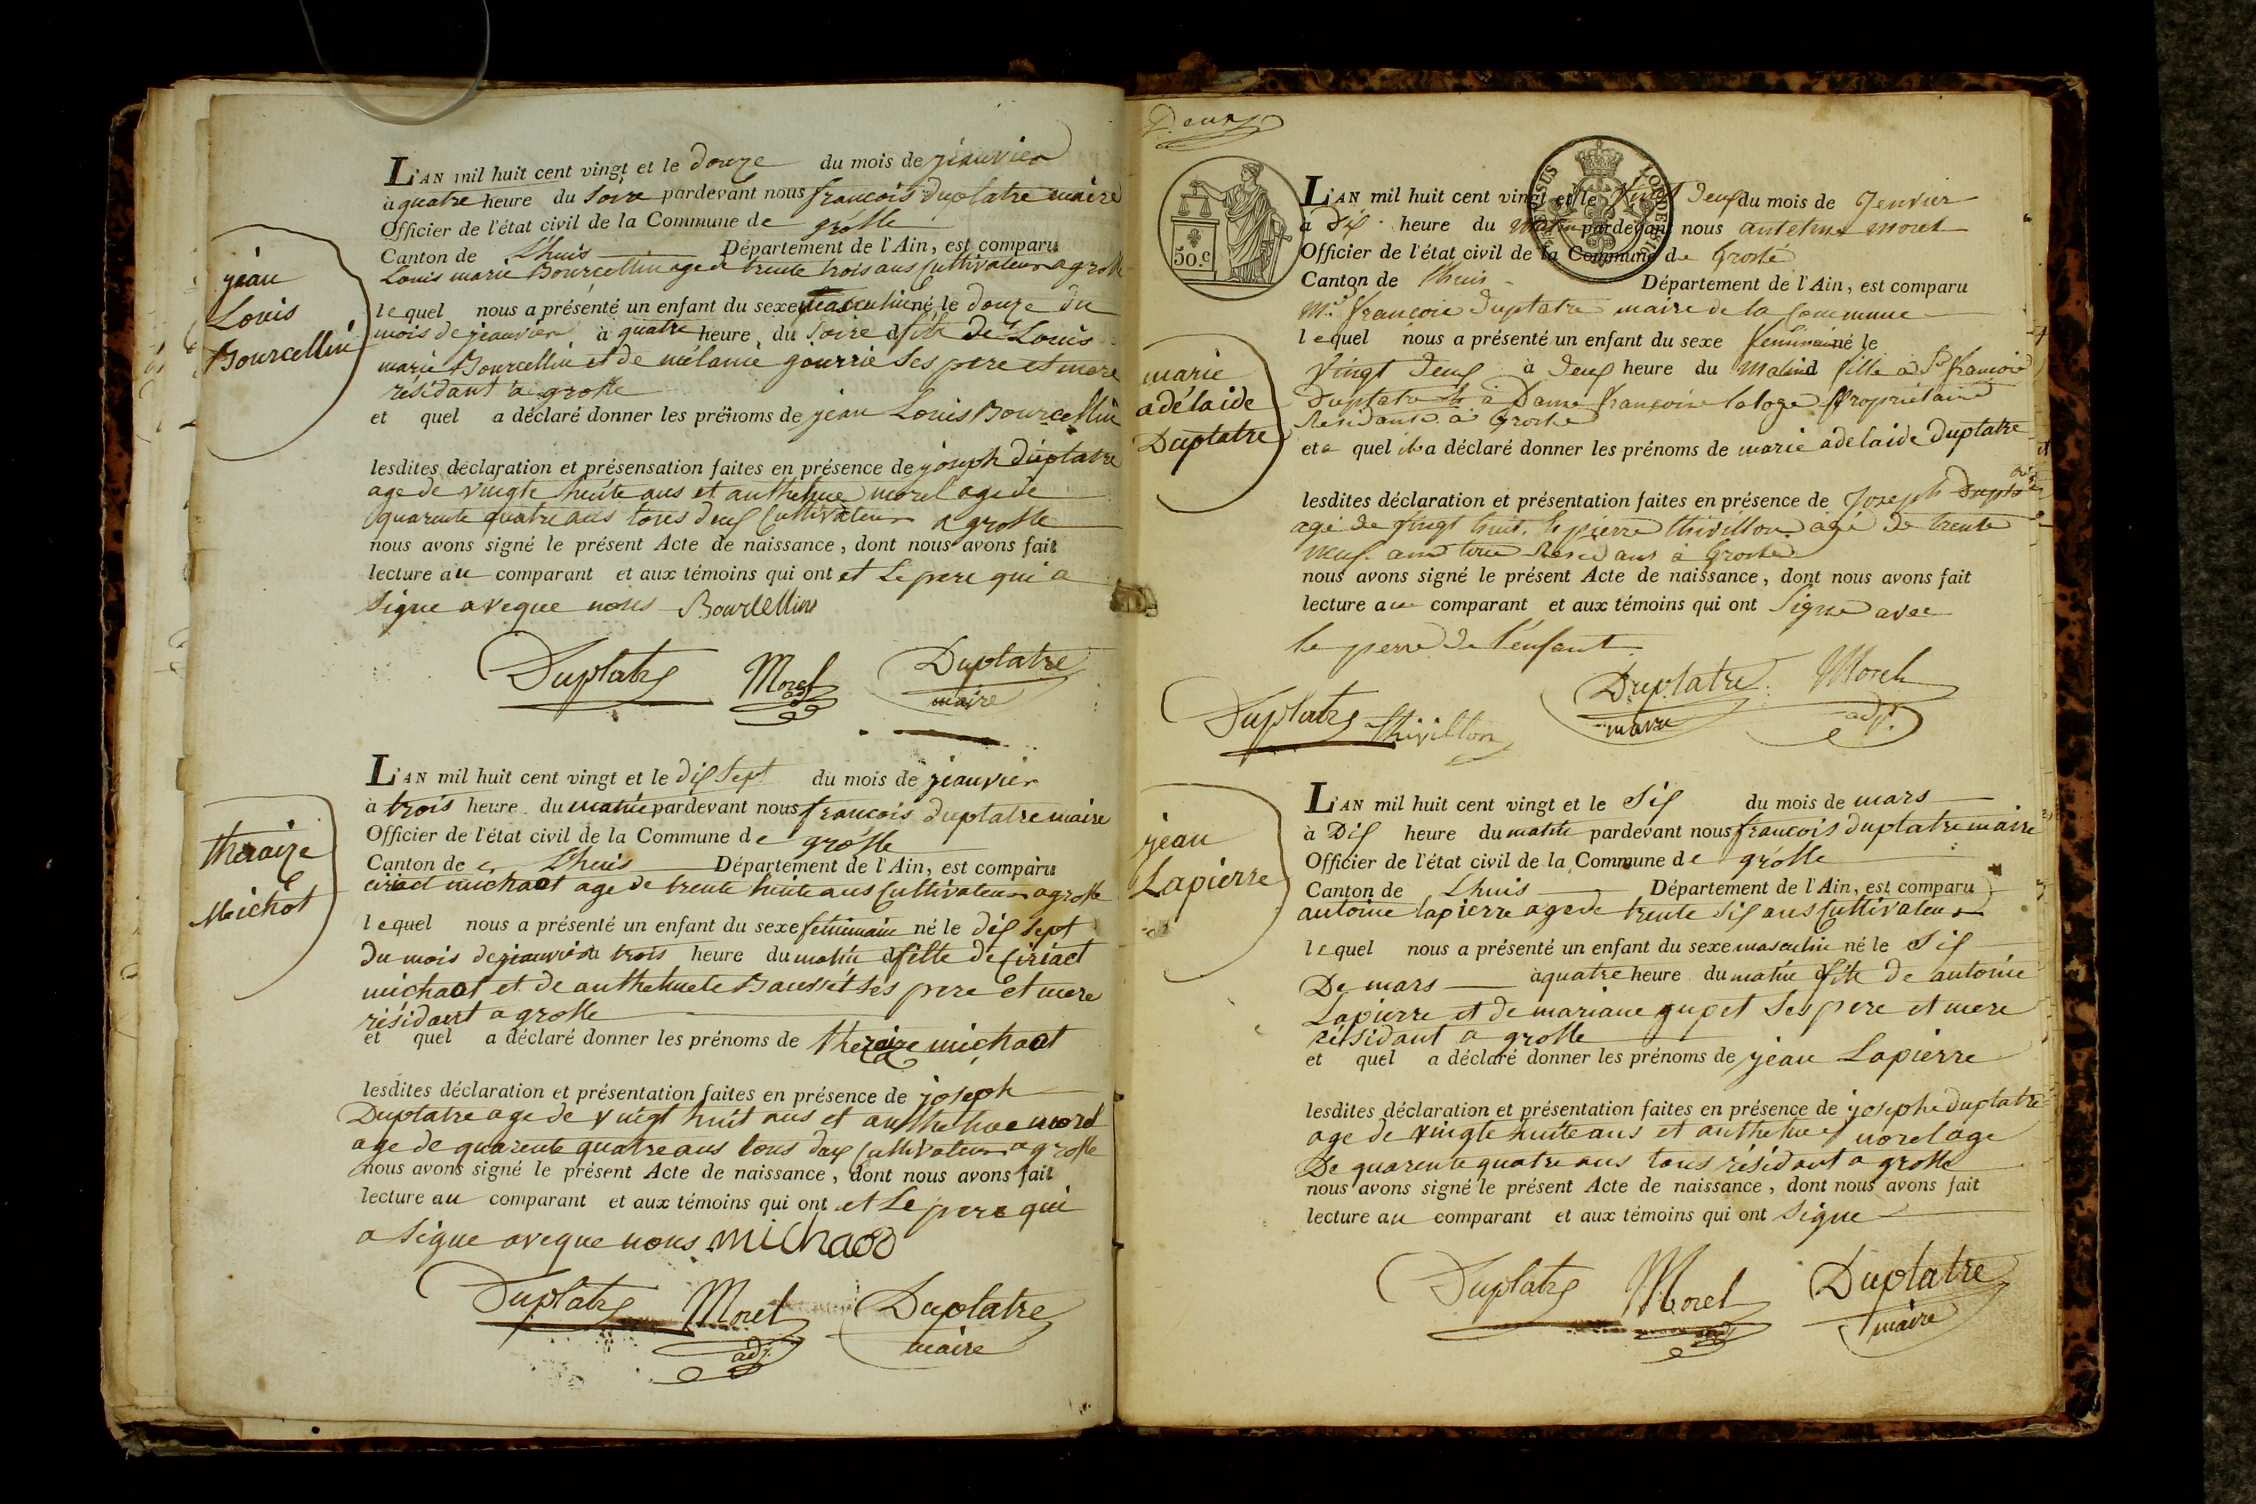 jéan
Louis
Bourcellin
L'AN mil huit cent vingt et le douze du mois de jeanvier
à quatre heure du soire pardevant nous francois duplatre maire
Officier de l'état civil de la Commune de grôlle
Canton de Lhuis Département de l'Ain, est comparu
Louis marie Bourcellin age de trente trois ans Cultivateur a grolle
lequel nous a présenté un enfant du sexe masculin né le douze du
mois de jeanvier à quatre heure du soire d fils de Louis
marie Bourcellin et de mélanie gourrie ses pere et mere
résidant a grolle
et quel a déclaré donner les prénoms de jéan Louis Bourcellin
lesdites déclaration et présensation faites en présence de joseph duplatre
age de vingte huite ans et anthelme morel age de
quarente quatre ans tous deux Cultivateur a grolle
nous avons signé le présent Acte de naissance, dont nous avons fait
lecture au comparant et aux témoins qui ont et Le pere qui a
signe aveque nous Bourcellin
Duplatre Morel adj. Duplatre
maire
theraize
Michot
L'AN mil huit cent vingt et le dix sept du mois de jeanvier
à trois heure du matin pardevant nous francois duplatre maire
Officier de l'état civil de la Commune de grôlle
Canton de Lhuis Département de l'Ain, est comparu
ciriact michaot age de trente huite ans Cultivateur a grolle
lequel nous a présenté un enfant du sexe feminain né le dix sept
du mois de jeanvier trois heure du matin d fille de Ciriact
michaot et de anthelme Bausset ses pere et mere
résidant a grolle
et quel a déclaré donner les prénoms de theraize michaot
lesdites déclaration et présentation faites en présence de joseph
Duplatre age de vuigt huit ans et anthelme morel
age de quarente quatre ans tous deux Cultivateur a grolle
nous avons signé le présent Acte de naissance, dont nous avons fait
lecture au comparant et aux témoins qui ont et Le pere qui
a signe aveque nous michaod
Duplatre Morel adj. Duplatre
maire
Deux
50.c
marie
adélaide
Duplatre
L'AN mil huit cent vingt et le vingt deux du mois de Jenvier
à Dix heure du matin pardevant nous antelme morel
Officier de l'état civil de la Commune de Groslé
Canton de Lhuis Département de l'Ain, est comparu
Mr. françois Duplatre maire de la Commune
lequel nous a présenté un enfant du sexe feminin né le
vingt deux à deux heure du matin d fille à Sr françois
Duplatre & à Dame françoise laloge propriétaire
Residant à Groslé
et a quel il a déclaré donner les prénoms de marie adelaide duplatre
lesdites déclaration et présentation faites en présence de Joseph Duplatre
agé de vingt huit, & pierre thivillon agé de trente
neuf ans tous Residans à Groslé
nous avons signé le présent Acte de naissance, dont nous avons fait
lecture au comparant et aux témoins qui ont Signé avec
le perre de l'enfant
Duplatre thivillon Duplatre Morel
maire adj.
jéan
Lapierre
L'AN mil huit cent vingt et le Six du mois de mars
à Dix heure du matin pardevant nous francois duplatre maire
Officier de l'état civil de la Commune de grôlle
Canton de Lhuis Département de l'Ain, est comparu
antoine lapierre age de trente six ans Cultivateur
lequel nous a présenté un enfant du sexe masculin né le Six
De mars à quatre heure du matin d fils de antoine
Lapierre et de mariane gupet ses pere et mere
résidant a grolle
et quel a déclaré donner les prénoms de jéan Lapierre
lesdites déclaration et présentation faites en présence de josephe duplatre
age de vingte huite ans et anthelme morel age
De quarente quatre ans tous résidant a grolle
nous avons signé le présent Acte de naissance, dont nous avons fait
lecture au comparant et aux témoins qui ont signe
Duplatre Morel adj. Duplatre
maire